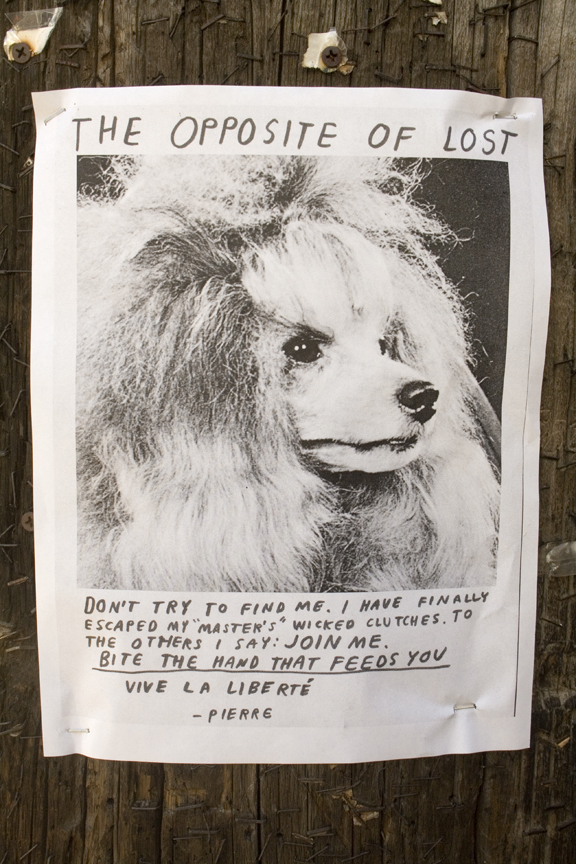 THE OPPOSITE OF LOST
DON'T TRY TO FIND ME. I HAVE FINALLY
ESCAPED MY "MASTER'S" WICKED CLUTCHES. TO
THE OTHERS I SAY: JOIN ME.
BITE THE HAND THAT FEEDS YOU
VIVE LA LIBERTÉ
- PIERRE